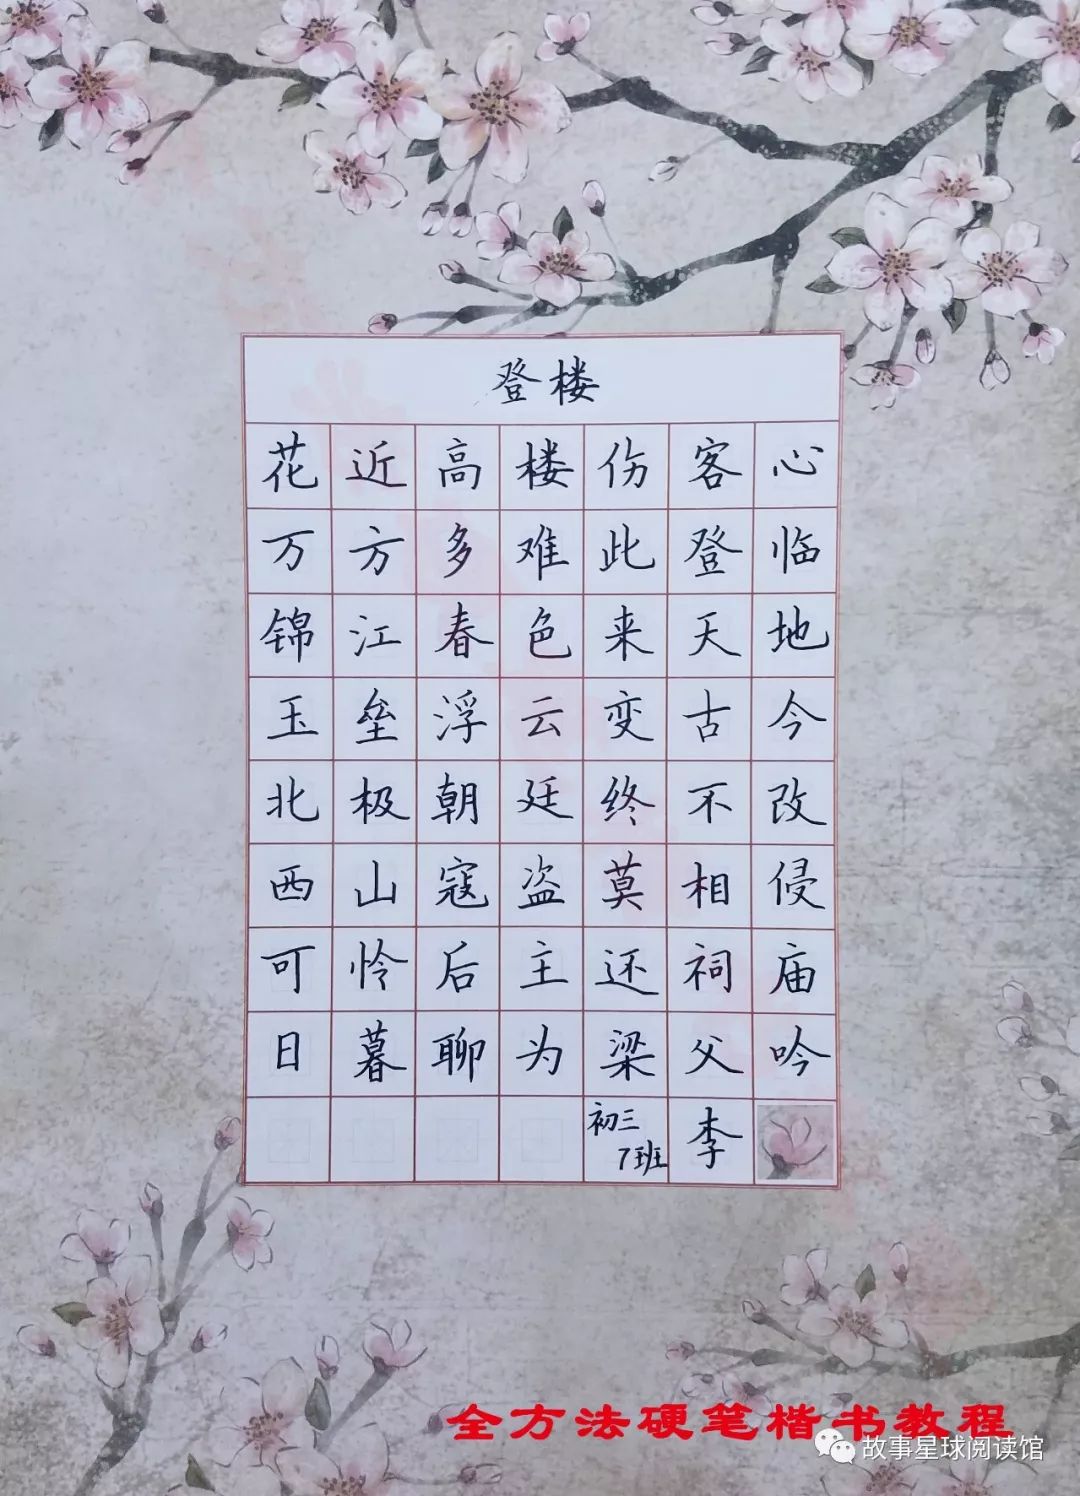 登楼
花近高楼伤客心
万方多难此登临
锦江春色来天地
玉垒浮云变古今
北极朝廷终不改
西山寇盗莫相侵
可怜后主还祠庙
日暮聊为梁父吟
初三
7班
李
全方法硬笔楷书教程
故事星球阅读馆